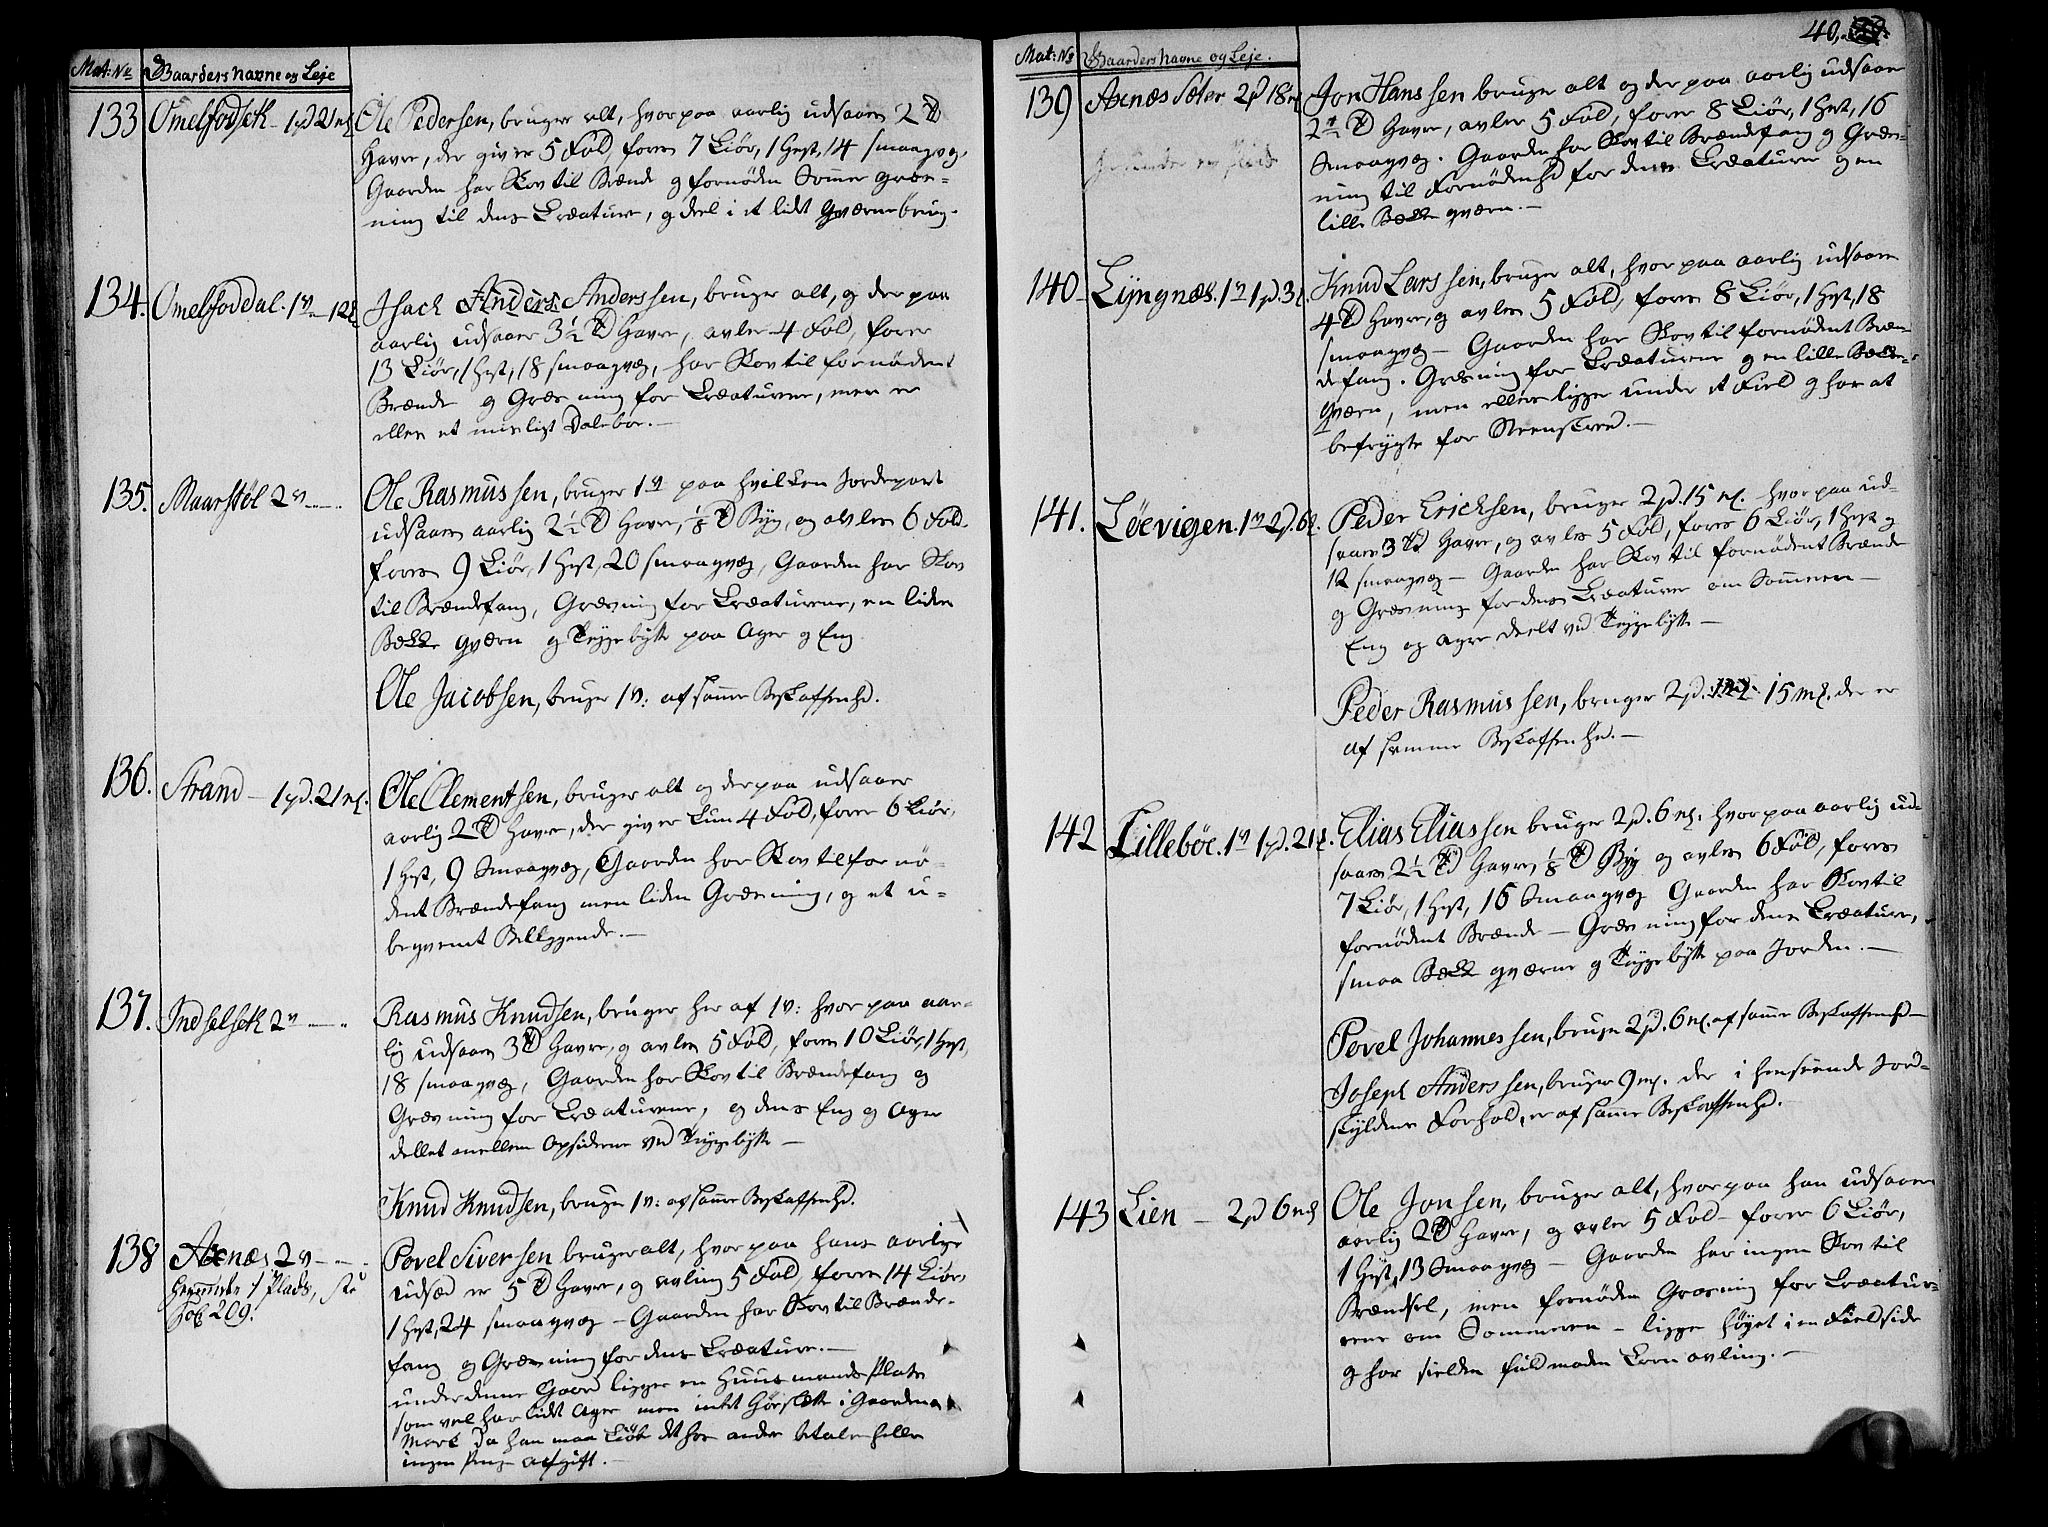 Mat: No Gaarders Navne og Leje
133 Omelfodseth - 1 pd 21 mk Ole Pedersen, bruger alt, hvorpaa aarlig udsaaes 2 Td
Havre, der giver 5 Fold, foder 7 Kiør, 1 Hest, 14 smaaqvæg,
Gaarden har Skov til Brænde og fornøden Sommer græs-
ning til dens Creature, og deel i et lidt Qværnebrug.
134. Omelfoddal. 1 v - 12 Isach Anders Anderssen, bruger alt, og der paa
aarlig udsaaer 3½ Td Havre, avler 4 Fold, foder
13 Kiør, 1 Hest, 18 smaaqvæg, har Skov til fornødent
Brænde og Græsning for Creaturene, men er
ellers et misligt Dalebøe.-
135. Maarstøl 2 v Ole Rasmussen, bruger 1 v paa hvilken Jordepart
udsaaes aarlig 2½ Td Havre, ⅛ Td Byg, og avler 6 Fold.
foder 9 Kiør, 1 Hest, 20 smaaqvæg, Gaarden har Skov
til Brændefang, Græsning for Creaturene, en liden
Bekke qværn og Teigebytte paa Ager og Eng
Ole Jacobsen, bruger 1 v: af samme Beskaffenhd.
136. Strand - 1 pd. 21 mk. Ole Clementsen, bruger alt og derpaa udsaaer
aarlig 2 Td Havre, der giver kun 4 Fold, foder 6 Kiør,
1 Hest, 9 Smaaqvæg, Gaarden har Skov til fornø-
dent Brændefang men liden Græsning, og et u-
beqvemt Beliggende.-
137. Indselseth 2 v Rasmus Knudsen, bruger her af 1 v: hvorpaa aar-
lig udsaaes 3 Td Havre, og avler 5 Fold, foder 10 Kiør, 1 Hest,
18 smaaqvæg, Gaarden har Skov til Brændefang og
Græsning for Creaturene, og dens Eng og Ager
deelet mellem Opsidderne ved Teigebytte -
Knud Knudsen, bruger 1 v: af samme Beskaffenhd.
138 Axnæs 2 v Povel Siversen bruger alt, hvorpaa hans aarlige
herunder 1 Plads, see udsæd er 5 Td Havre, og avling 5 Fold, foder 14 Kiør,
Fol 209. 1 Hest, 24 smaaqvæg - Gaarden har Skov til Brænde-
fang og Græsning for dens Creature.-
under denne Gaard ligger en Huusmands Plads
som vel har lidt Ager men intet Høeslætte i Gaardens
Mark da han maa kiøbe det hos andre betaler heller
ingen Penge afgift.-
40.
Mat: No Gaarders Navne og Leje.
139 Axnæs Sæter 2 pd 18 mk Jon Hanssen bruger alt og der paa aarlig udsaaer
2½ Td Havre, avler 5 Fold, foder 8 Kiør, 1 Hest, 16
Smaaqvæg. Gaarden har Skov til Brændefang og Græs-
ning til Fornødenhd for dens Creature og en
lille Bekke qværn.-
140 Lyngnæs. 1 v 1 pd. 3 Knud Larssen, bruger alt, hvorpaa aarlig udsaaes
4 Td Havre, og avles 5 Fold, foder 8 Kiør, 1 Hest, 18
smaaqvæg - Gaarden har Skov til fornødent Bræn-
defang. Græsning for Creaturene og en lille Bekke-
qværn, men ellers ligger under et Field og har at
befrygte for Steenskred.-
141. Løevigen. 1 v 2 pd. 6 Peder Ericksen, bruger 2 pd. 15 mk. hvorpaa ud-
saaes 3 Td Havre, og avles 5 Fold, foder 6 Kiør, 1 Hest og
12 smaaqvæg - Gaarden har Skov til fornødent Brænde
og Græsning for dens Creature om Sommeren -
Eng og Ager deelt ved Teigebytte -
Peder Rasmussen, bruger 2 pd. 15 mk. der er
af samme Beskaffenhd.-
142 Lillebøe. 1 v 1 pd. 21 Elias Eliassen bruger 2 pd. 6 mk. hvorpaa aarlig ud-
saaes 2½ Td Havre, ⅛ Td Byg og avles 6 Fold, foder
7 Kiør, 1 Hest, 16 Smaaqvæg Gaarden har Skov til
fornødent Brænde - Græsning for dens Creature,
smaa Bekk qværne og Teigebytte paa Jorden.-
Povel Johannessen, bruger 2 pd. 6 mk. af samme Beskaffenhd -
Joseph Anderssen, bruger 9 mk. der i henseende Jord-
skyldens Forhold, er af samme Beskaffenhd.-
143 Lien - 2 pd 6 mk Ole Jonsen, bruger alt, hvorpaa han udsaaer
aarlig 2 Td Havre, og avler 5 Fold - foder 6 Kiør,
1 Hest, 13 Smaaqvæg - Gaarden har ingen Skov til
Brændsel, men fornøden Græsning for Creatur-
rene om Sommeren - ligger høyt i en Fieldside
og har sielden fuldmoden Korn avling.-